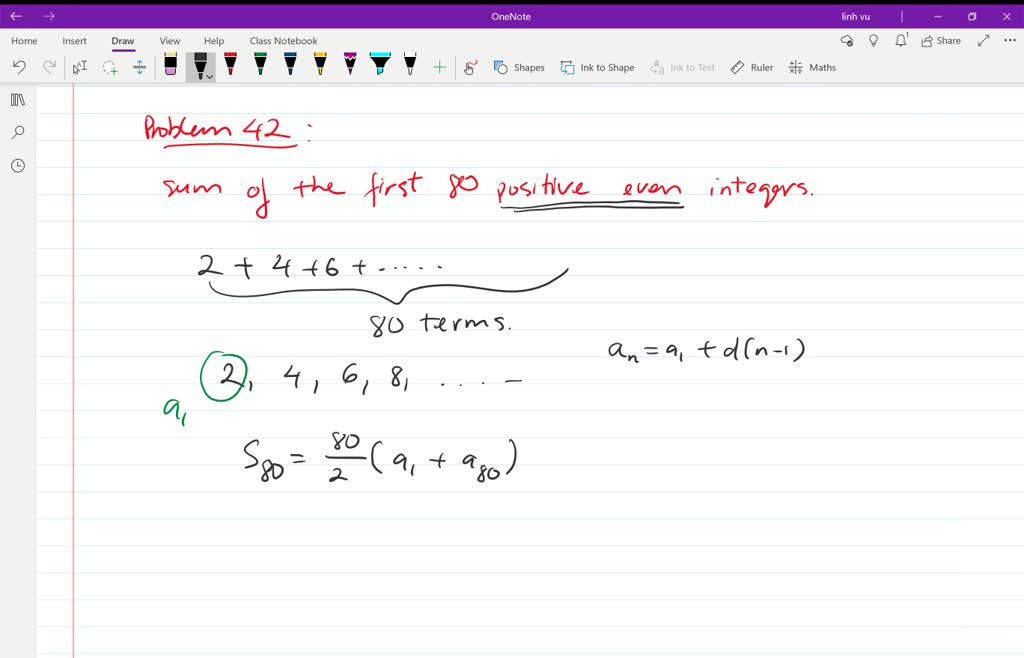 OneNote
linh vu
Home Insert Draw View Help Class Notebook
Share
Shapes Ink to Shape Ink to Text Ruler Maths
Problem 42 :
sum of the first 80 positive even integers.
2 + 4 + 6 + ......
80 terms.
aₙ = a₁ + d(n-1)
2, 4, 6, 8, .... –
a₁
S₈₀ = 80/2 (a₁ + a₈₀)